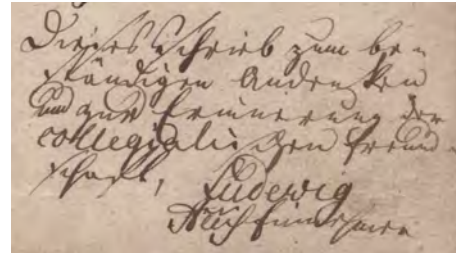 Dieses schrieb zum be-
ständigen Andenken
und zur Erinnerung der
collegialischen Freund-
schaft, Ludewig